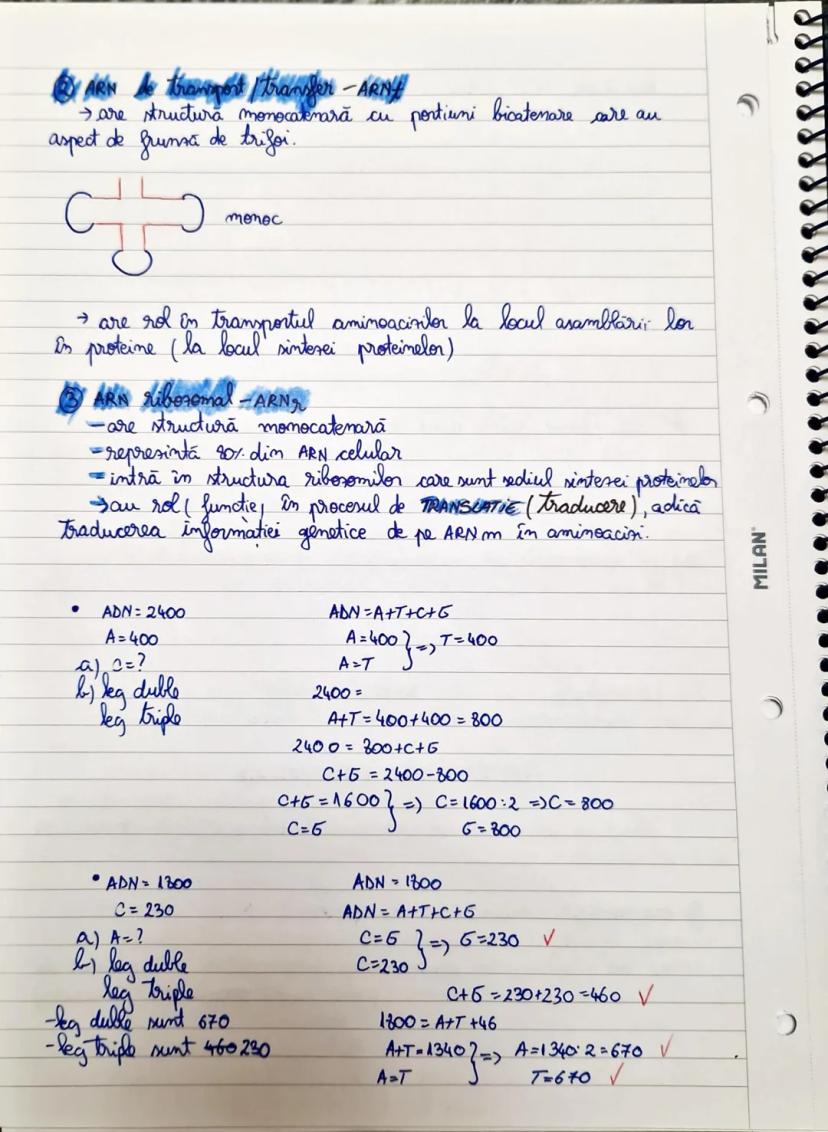 ② ARN de transport/transfer - ARNt
→ are structură monocatenară cu portiuni bicatenare care au
aspect de frunză de trifoi.
monoc
→ are rol în transportul aminoacizilor la locul asamblării lor
în proteine (la locul sintezei proteinelor)
③ ARN ribozomal - ARNr
- are structură monocatenară
- reprezintă 80% din ARN celular
- intră în structura ribozomilor care sunt sediul sintezei proteinelor
→ au rol (functie) în procesul de TRANSLATIE (traducere), adică
traducerea informației genetice de pe ARNm în aminoacizi.
MILAN
• ADN = 2400
A = 400
a) C = ?
b) leg duble
leg triple
ADN = A+T+C+G
A = 400 } => T = 400
A = T
2400 =
A+T = 400+400 = 800
2400 = 800+C+G
C+G = 2400-800
C+G = 1600 } => C = 1600:2 => C = 800
C = G G = 800
• ADN = 1800
C = 230
a) A = ?
b) leg duble
leg triple
- leg duble sunt 670
- leg triple sunt 460 230
ADN = 1800
ADN = A+T+C+G
C = G } => G = 230 ✓
C = 230
C+G = 230+230 = 460 ✓
1800 = A+T+46
A+T = 1340 } => A = 1340:2 = 670 ✓
A = T T = 670 ✓